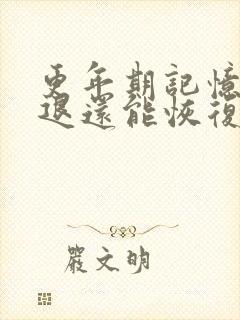 更年期記憶
退還能恢復
嚴文明